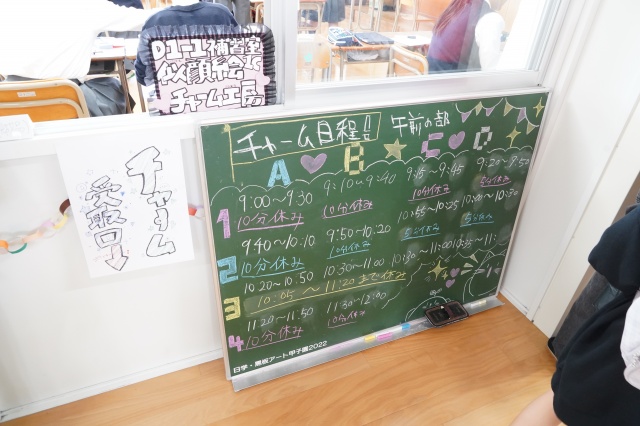 似顔絵&
チャーム工房
チャーム
受取口
チャーム日程!! 午前の部
A B C D
1 9:00~9:30 9:10~9:40 9:15~9:45 9:20~9:50
10分休み 10分休み 10分休み 5分休み
2 9:40~10:10 9:50~10:20 10:00~10:30
10分休み 10分休み 5分休み 5分休み
10:20~10:50 10:30~11:00 10:30~11:00
3 10:05~11:20まで休み
4 11:20~11:50 11:30~12:00
10分休み 10分休み
日学・黒板アート甲子園2022